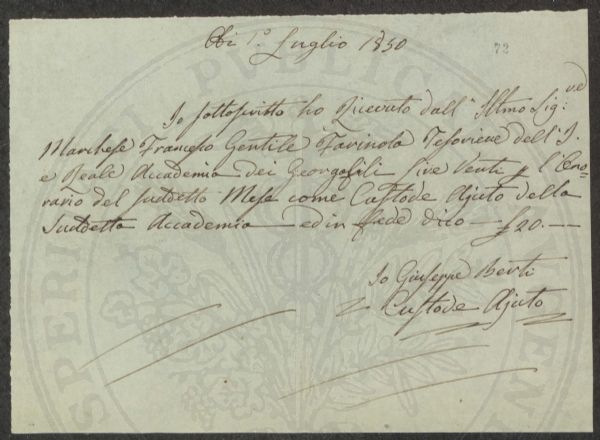 Adi 1.° Luglio 1850
72
Io sottoscritto ho Ricevuto dall' Illmo Sig:
Marchese Francesco Gentile Farinola Tesoriere dell' I.
e Reale Accademia dei Georgofili Lire Venti p l'Ono=
rario del suddetto Mese come Custode Ajuto della
Suddetta Accademia ed in fede dico £20.
Io Giuseppe Berti
Custode Ajuto